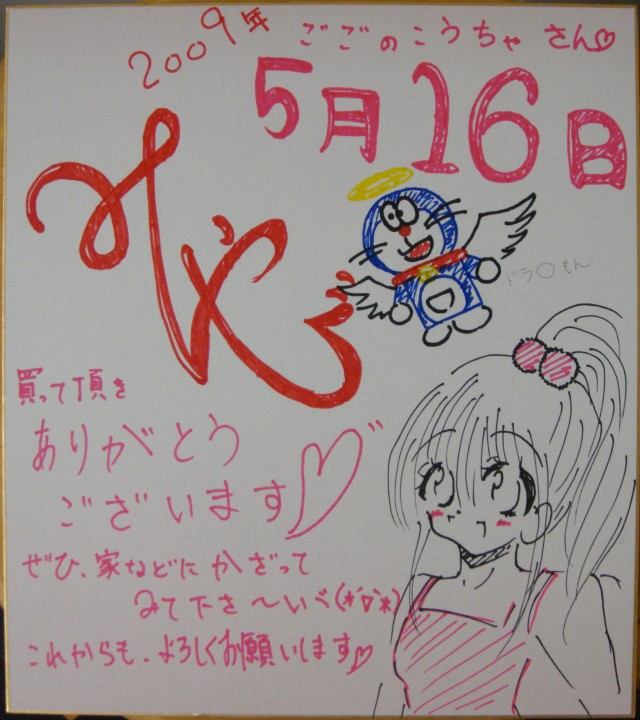 2009年 ごごのこうちゃさん♡
5月16日
みやび
ドラ〇もん
買って頂き
ありがとう
ございます♡
ぜひ、家などにかざって
みて下さ〜いべ(*´▽`*)
これからも、よろしくお願いします♡